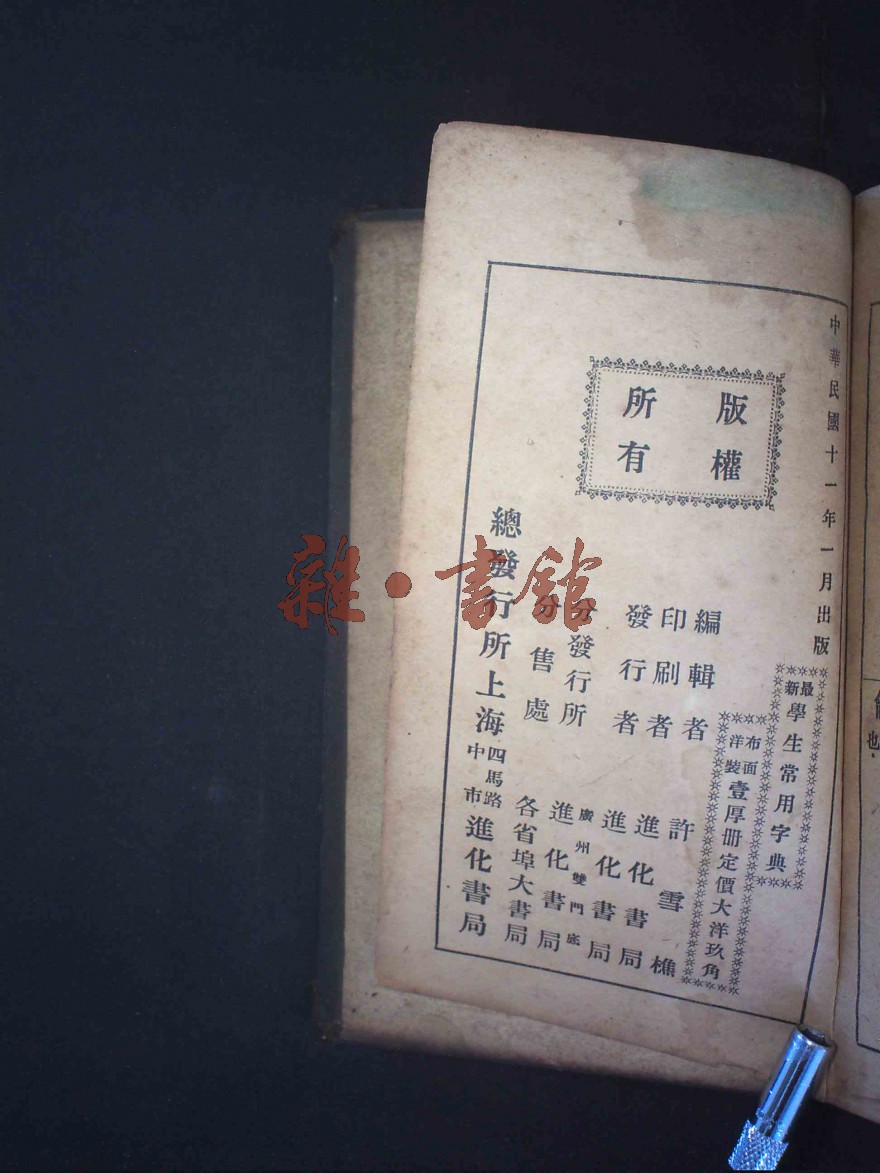 中華民國十一年一月出版
最新學生常用字典
布面洋裝壹厚册定價大洋玖角
版權
所有
編輯者 許雪樵
印刷者 進化書局
發行者 進化書局
分發行所 廣州雙門底 進化書局
分售處 各省埠大書局
總發行所 上海四馬路中市 進化書局
雜·書館
也